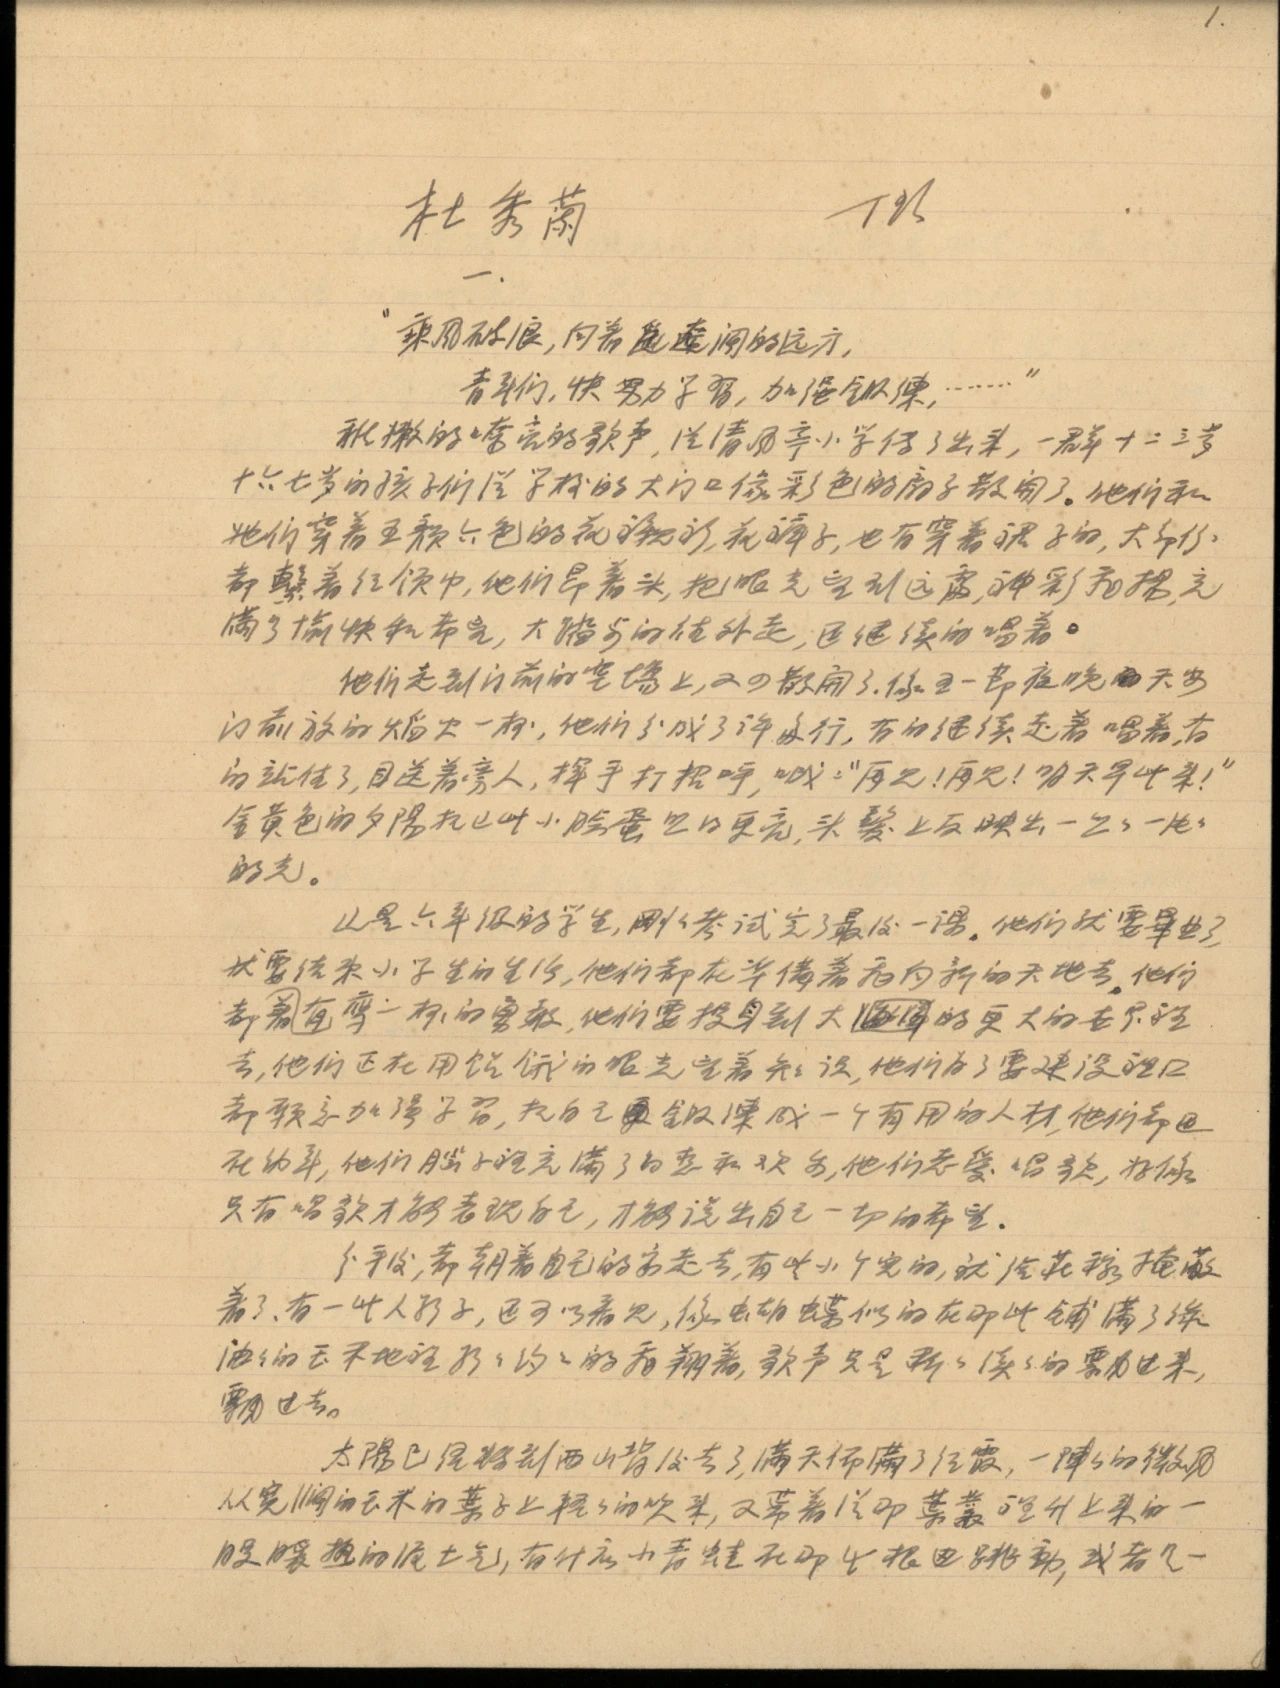 1.
杜秀蘭 丁玲
一.
"乘风破浪，向着遼闊的远方，
青年们，快努力学習，加强鍛煉，……"
的嘹亮的歌声，从清风亭小学传了出来，一群十二三岁
十六七岁的孩子们从学校的大门口像彩色的扇子散开了。他们和
她们穿着五颜六色的花襯衫，花褲子，也有穿着裙子的，大部份
都繫着红领巾，他们昂着头，把眼光望到远處，神彩飛揚，充
满了愉快和希望，大踏步的往外走，还继续的唱着。
他们走到门前的空場上，又四散開了。像五一節夜晚天安
门前放的焰火一样，他们分成了许多行，有的继续走着唱着，有
的站住了，目送着旁人，揮手打招呼，喊："再見！再見！明天早些来！"
金黄色的夕陽把这些小脸蛋照得更亮，头髮上反映出一
的光。
这是六年级的学生，刚刚考试完了最後一课。他们就要畢业了，
就要结束小学生的生活，他们都在準備着飛向新的天地去。他们
都着有齊一样的勇敢，他们要投身到大的更大的世界裡
去，他们正在用饥饿的眼光望着知识，他们为了要建设祖国
都願意加强学習，把自己鍛煉成一个有用的人材，他们都还
在幼年，他们腦子裡充满了和欢乐，他们愛唱歌，好像
只有唱歌才够表现自己，才够说出自己一切的希望。
分手後，都朝着自己的家走去，有些小个兒的，就给莊稼掩蔽
着了，有一些人影子，还可以看見，像蝴蝶似的在那些铺满了绿
油油的玉米地裡影影绰绰的飛翔着，歌声只是断断续续的飄过来，
飄过去。
太陽已经移到西山背後去了，满天佈满了红霞，一陣陣的微风
从宽闊的玉米的葉子上輕輕的吹来，又带着从那葉叢裡升上来的一
股暖熱的泥土气，有什么小青蛙在那些根边跳動，或者是一